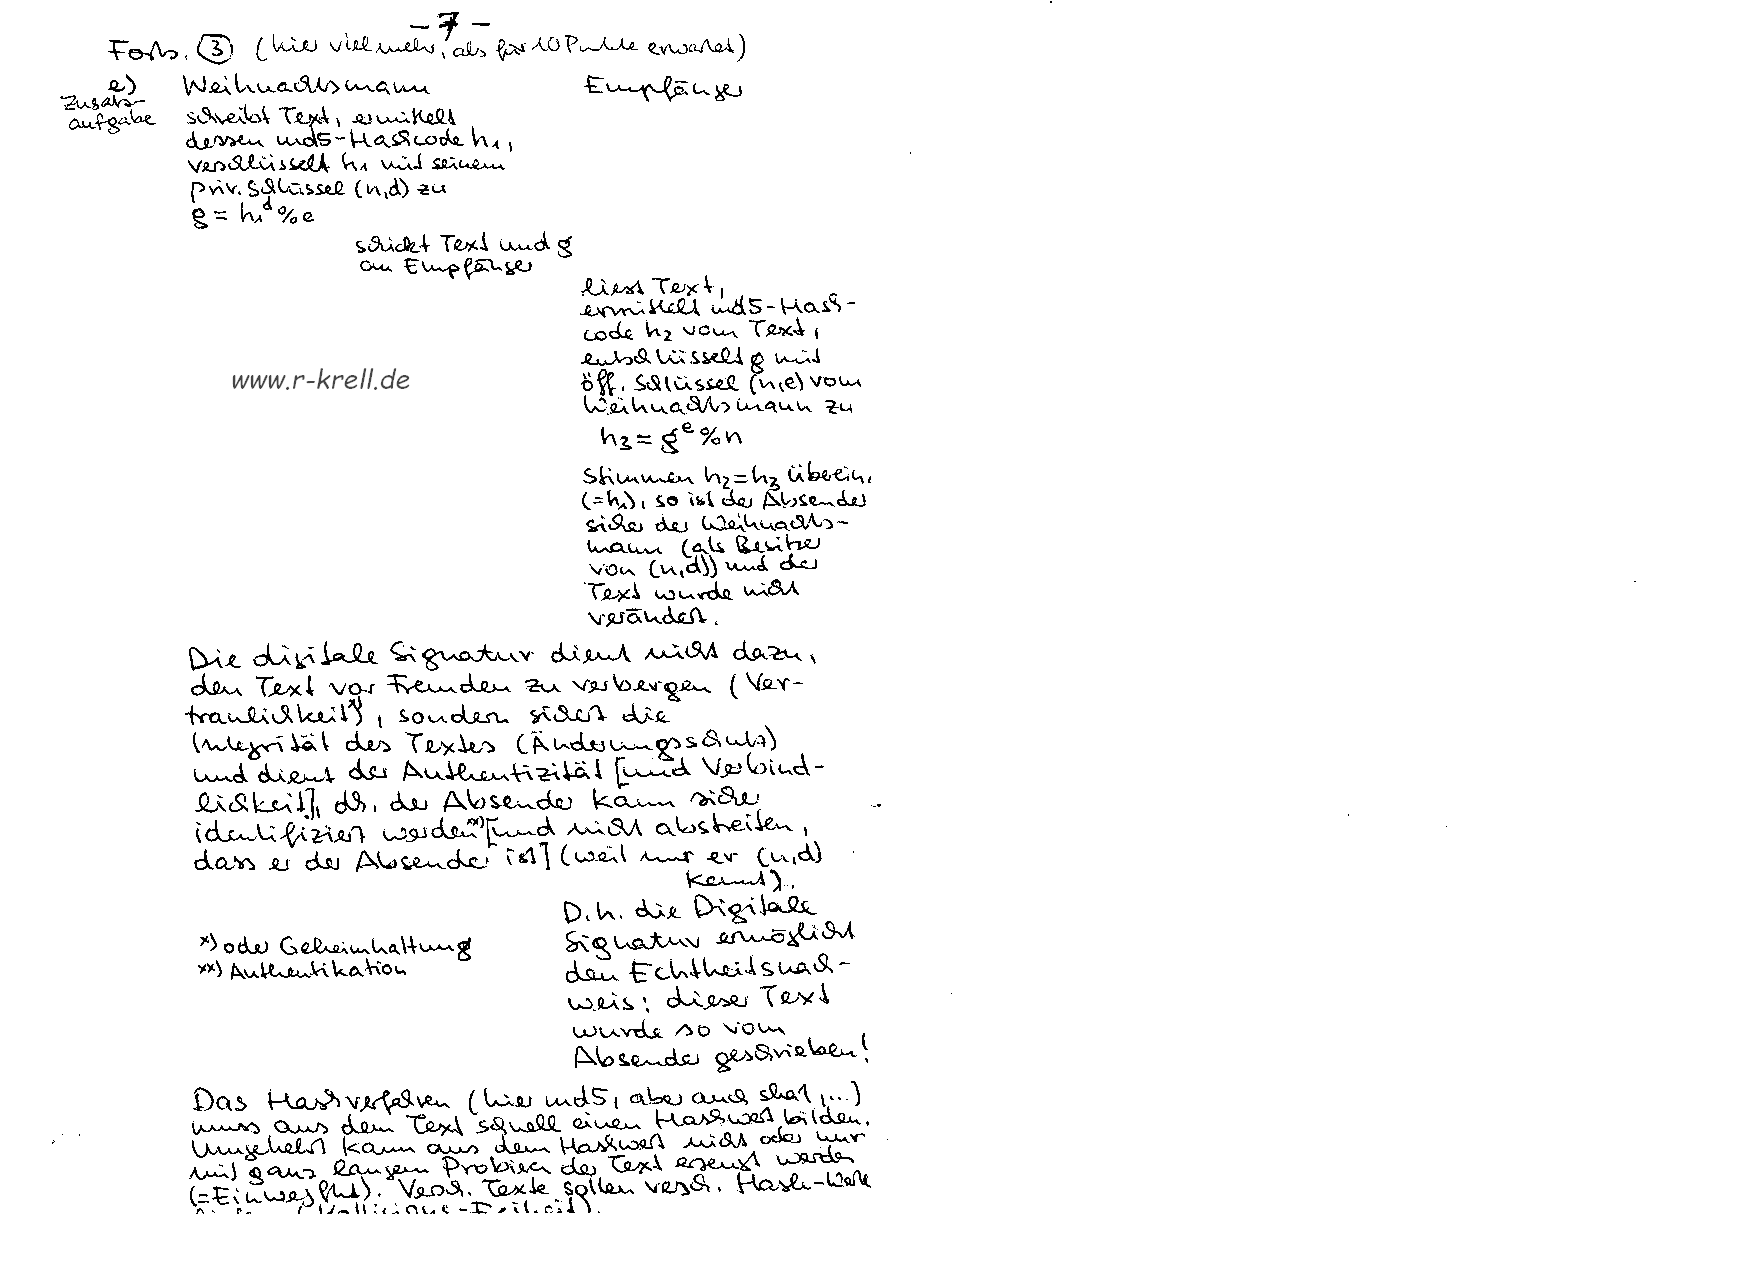 - 7 -
Forts. ③ (hier viel mehr, als für 10 Punkte erwartet)
e) Weihnachtsmann Empfänger
Zusatz-
aufgabe
schreibt Text, ermittelt
dessen md5-Hashcode h₁,
verschlüsselt h₁ mit seinem
priv. Schlüssel (n,d) zu
g = h₁^d % e
schickt Text und g
an Empfänger
liest Text,
ermittelt md5-Hash-
code h₂ vom Text,
entschlüsselt g mit
öff. Schlüssel (n,e) vom
Weihnachtsmann zu
h₃ = g^e % n
Stimmen h₂=h₃ überein,
(=h₁), so ist der Absender
sicher der Weihnachts-
mann (als Besitzer
von (n,d)) und der
Text wurde nicht
verändert.
www.r-krell.de
Die digitale Signatur dient nicht dazu,
den Text vor Fremden zu verbergen (Ver-
traulichkeit*)), sondern sichert die
Integrität des Textes (Änderungsschutz)
und dient der Authentizität [und Verbind-
lichkeit], dh. der Absender kann sicher
identifiziert werden**) [und nicht abstreiten,
dass er der Absender ist] (weil nur er (n,d)
kennt).
D.h. die Digitale
Signatur ermöglicht
den Echtheitsnach-
weis: dieser Text
wurde so vom
Absender geschrieben!
*) oder Geheimhaltung
**) Authentikation
Das Hashverfahren (hier md5, aber auch sha1,...)
muss aus dem Text schnell einen Hashwert bilden.
Umgekehrt kann aus dem Hashwert nicht oder nur
mit ganz langem Probieren der Text erzeugt werden
(=Einwegfkt). Versch. Texte sollen versch. Hash-Werte
(Kollisions-Freiheit).